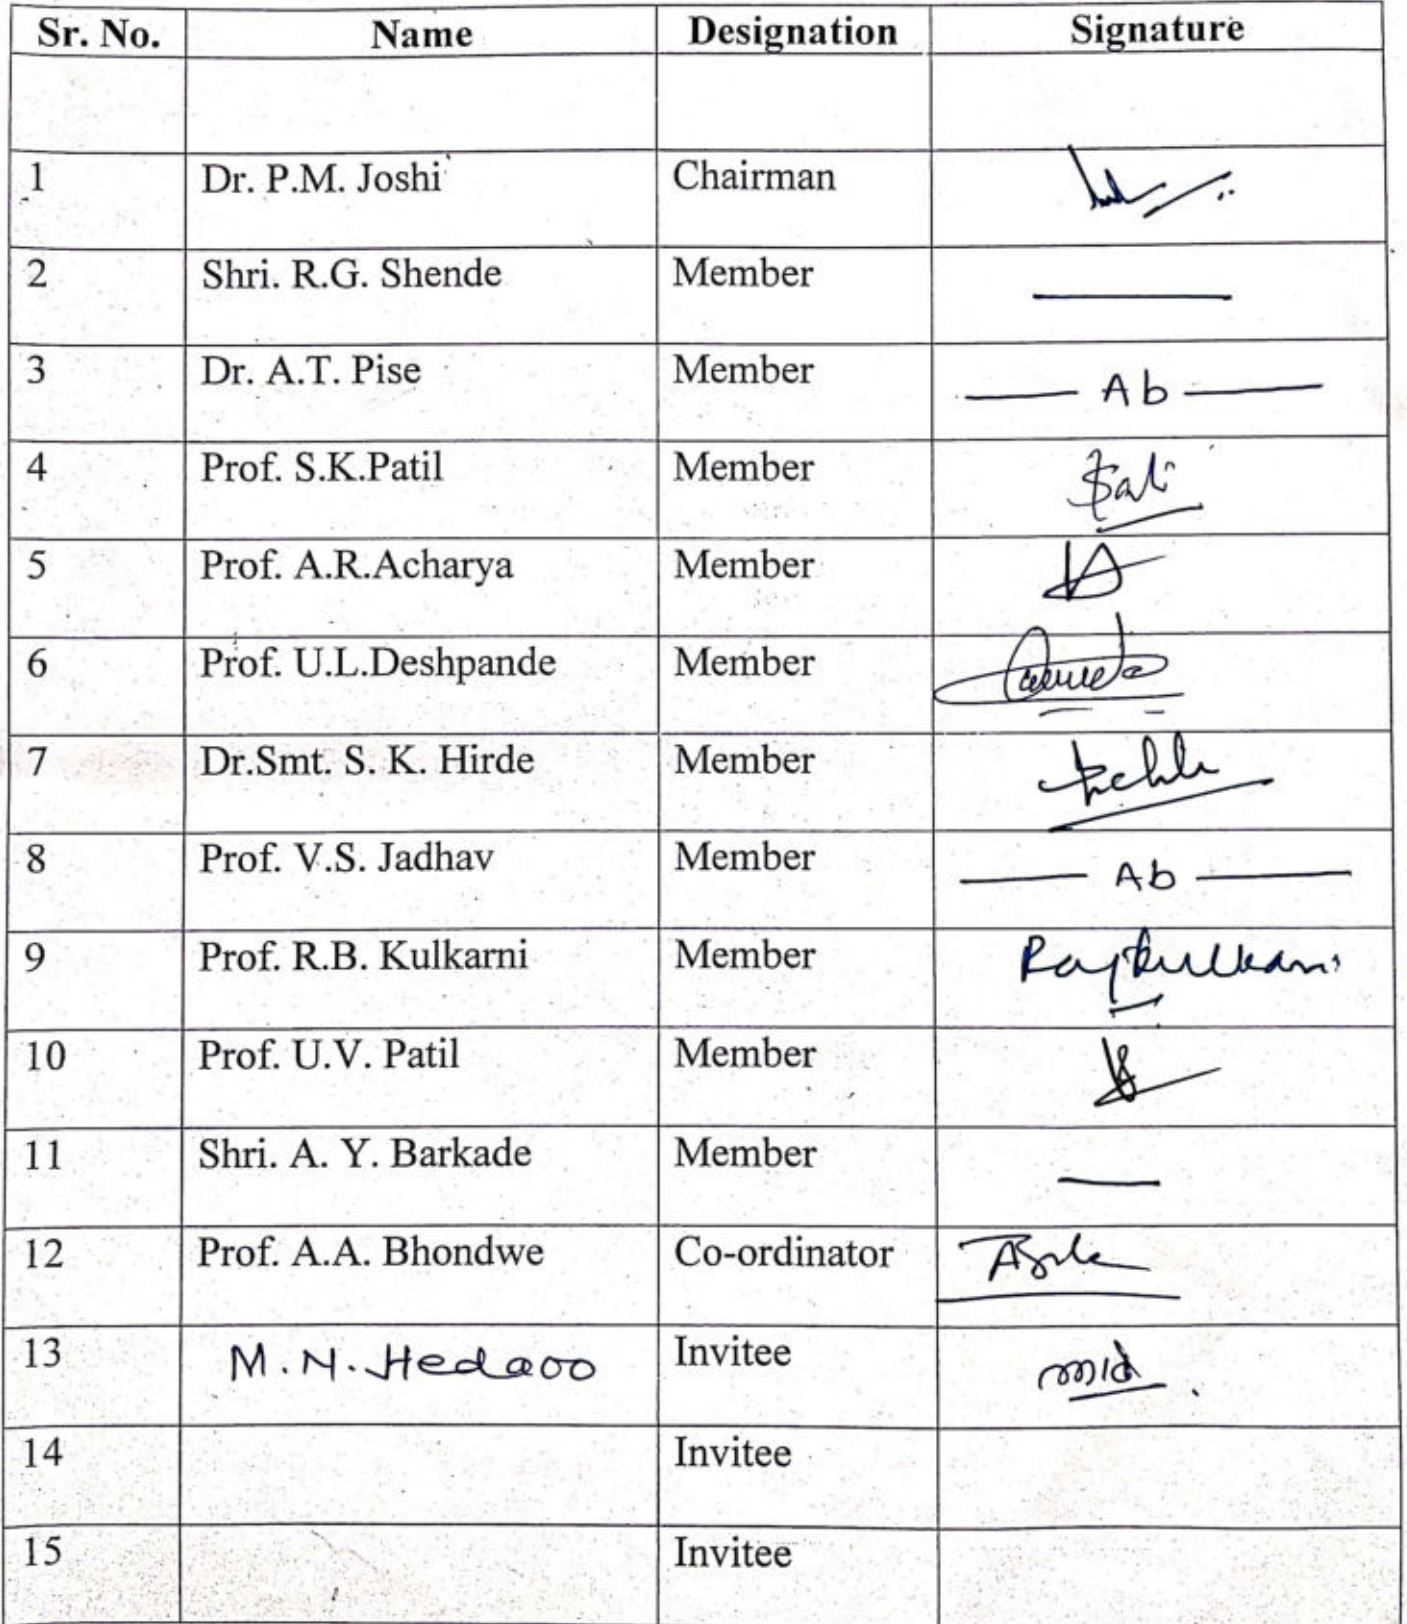 Sr. No. Name Designation Signature
1 Dr. P.M. Joshi Chairman
2 Shri. R.G. Shende Member
3 Dr. A.T. Pise Member Ab
4 Prof. S.K.Patil Member
5 Prof. A.R.Acharya Member
6 Prof. U.L.Deshpande Member
7 Dr.Smt. S. K. Hirde Member
8 Prof. V.S. Jadhav Member Ab
9 Prof. R.B. Kulkarni Member Rajkulkarni
10 Prof. U.V. Patil Member
11 Shri. A. Y. Barkade Member
12 Prof. A.A. Bhondwe Co-ordinator
13 M.N. Hedaoo Invitee
14 Invitee
15 Invitee